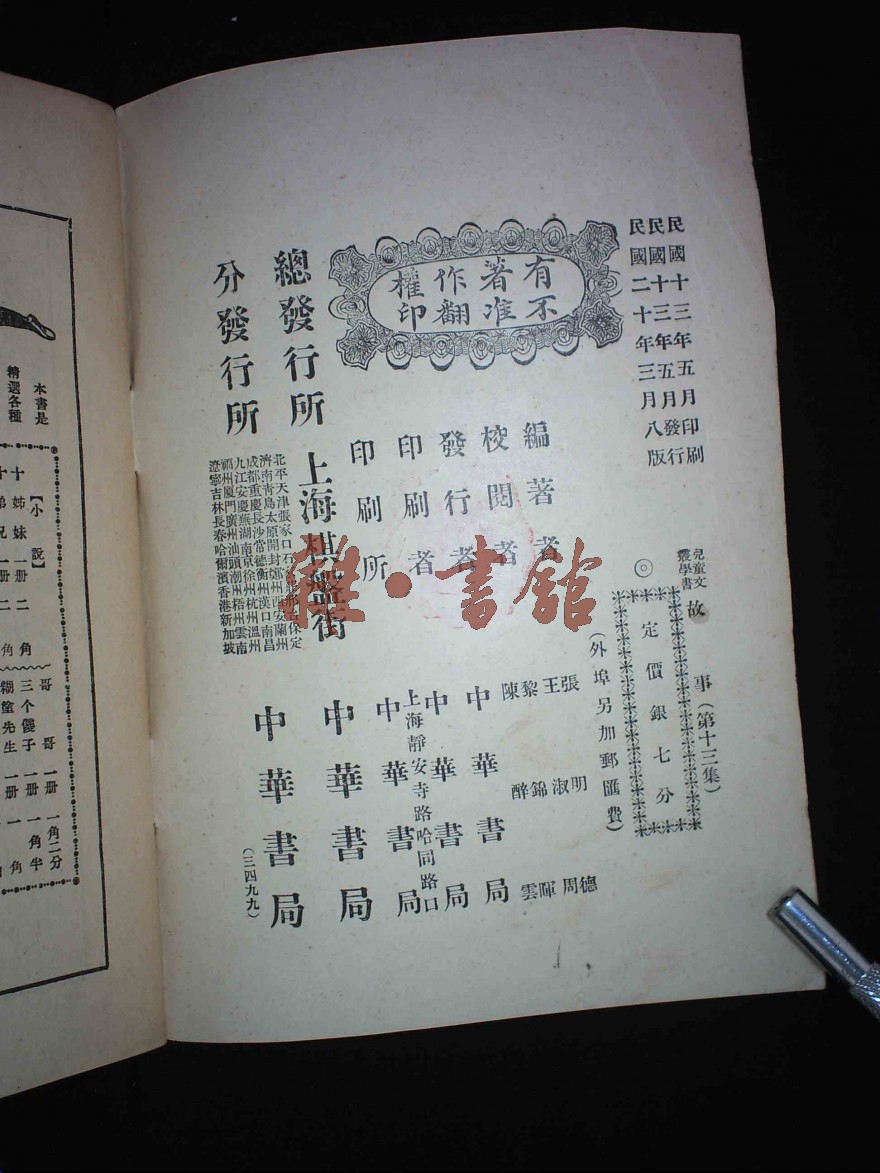 民國十三年五月印刷
民國十三年五月發行
民國二十年三月八版
兒童文
叢學書
故事(第十三集)
◎定價銀七分
(外埠另加郵匯費)
有著作權
不准翻印
編著者 張明德
王淑周
校閱者 黎錦暉
陳醉雲
發行者 中華書局
印刷者 中華書局
上海靜安寺路哈同路口
印刷所 中華書局
總發行所 上海棋盤街 中華書局
分發行所
北平天津張家口石 邢台保定
濟南青島太原開封鄭州西安蘭州
成都重慶長沙常德衡州漢口南昌
九江安慶蕪湖南京徐州杭州溫州
福州廈門廣州汕頭潮州梧州雲南
遼寧吉林長春哈爾濱香港新加坡
中華書局
(三四九九)
雜·書館
本書是
精選各種
【小說】
十姊妹 一册 二角
弟兄 一册 二角
哥哥 一册 一角二分
三个傻子 一册 一角半
糊塗先生 一册 一角